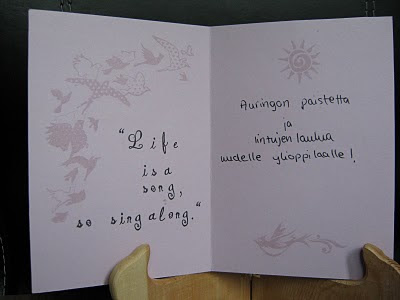 "Life
is a
song,
so sing along."
Auringon paistetta
ja
lintujen laulua
uudelle ylioppilaalle!